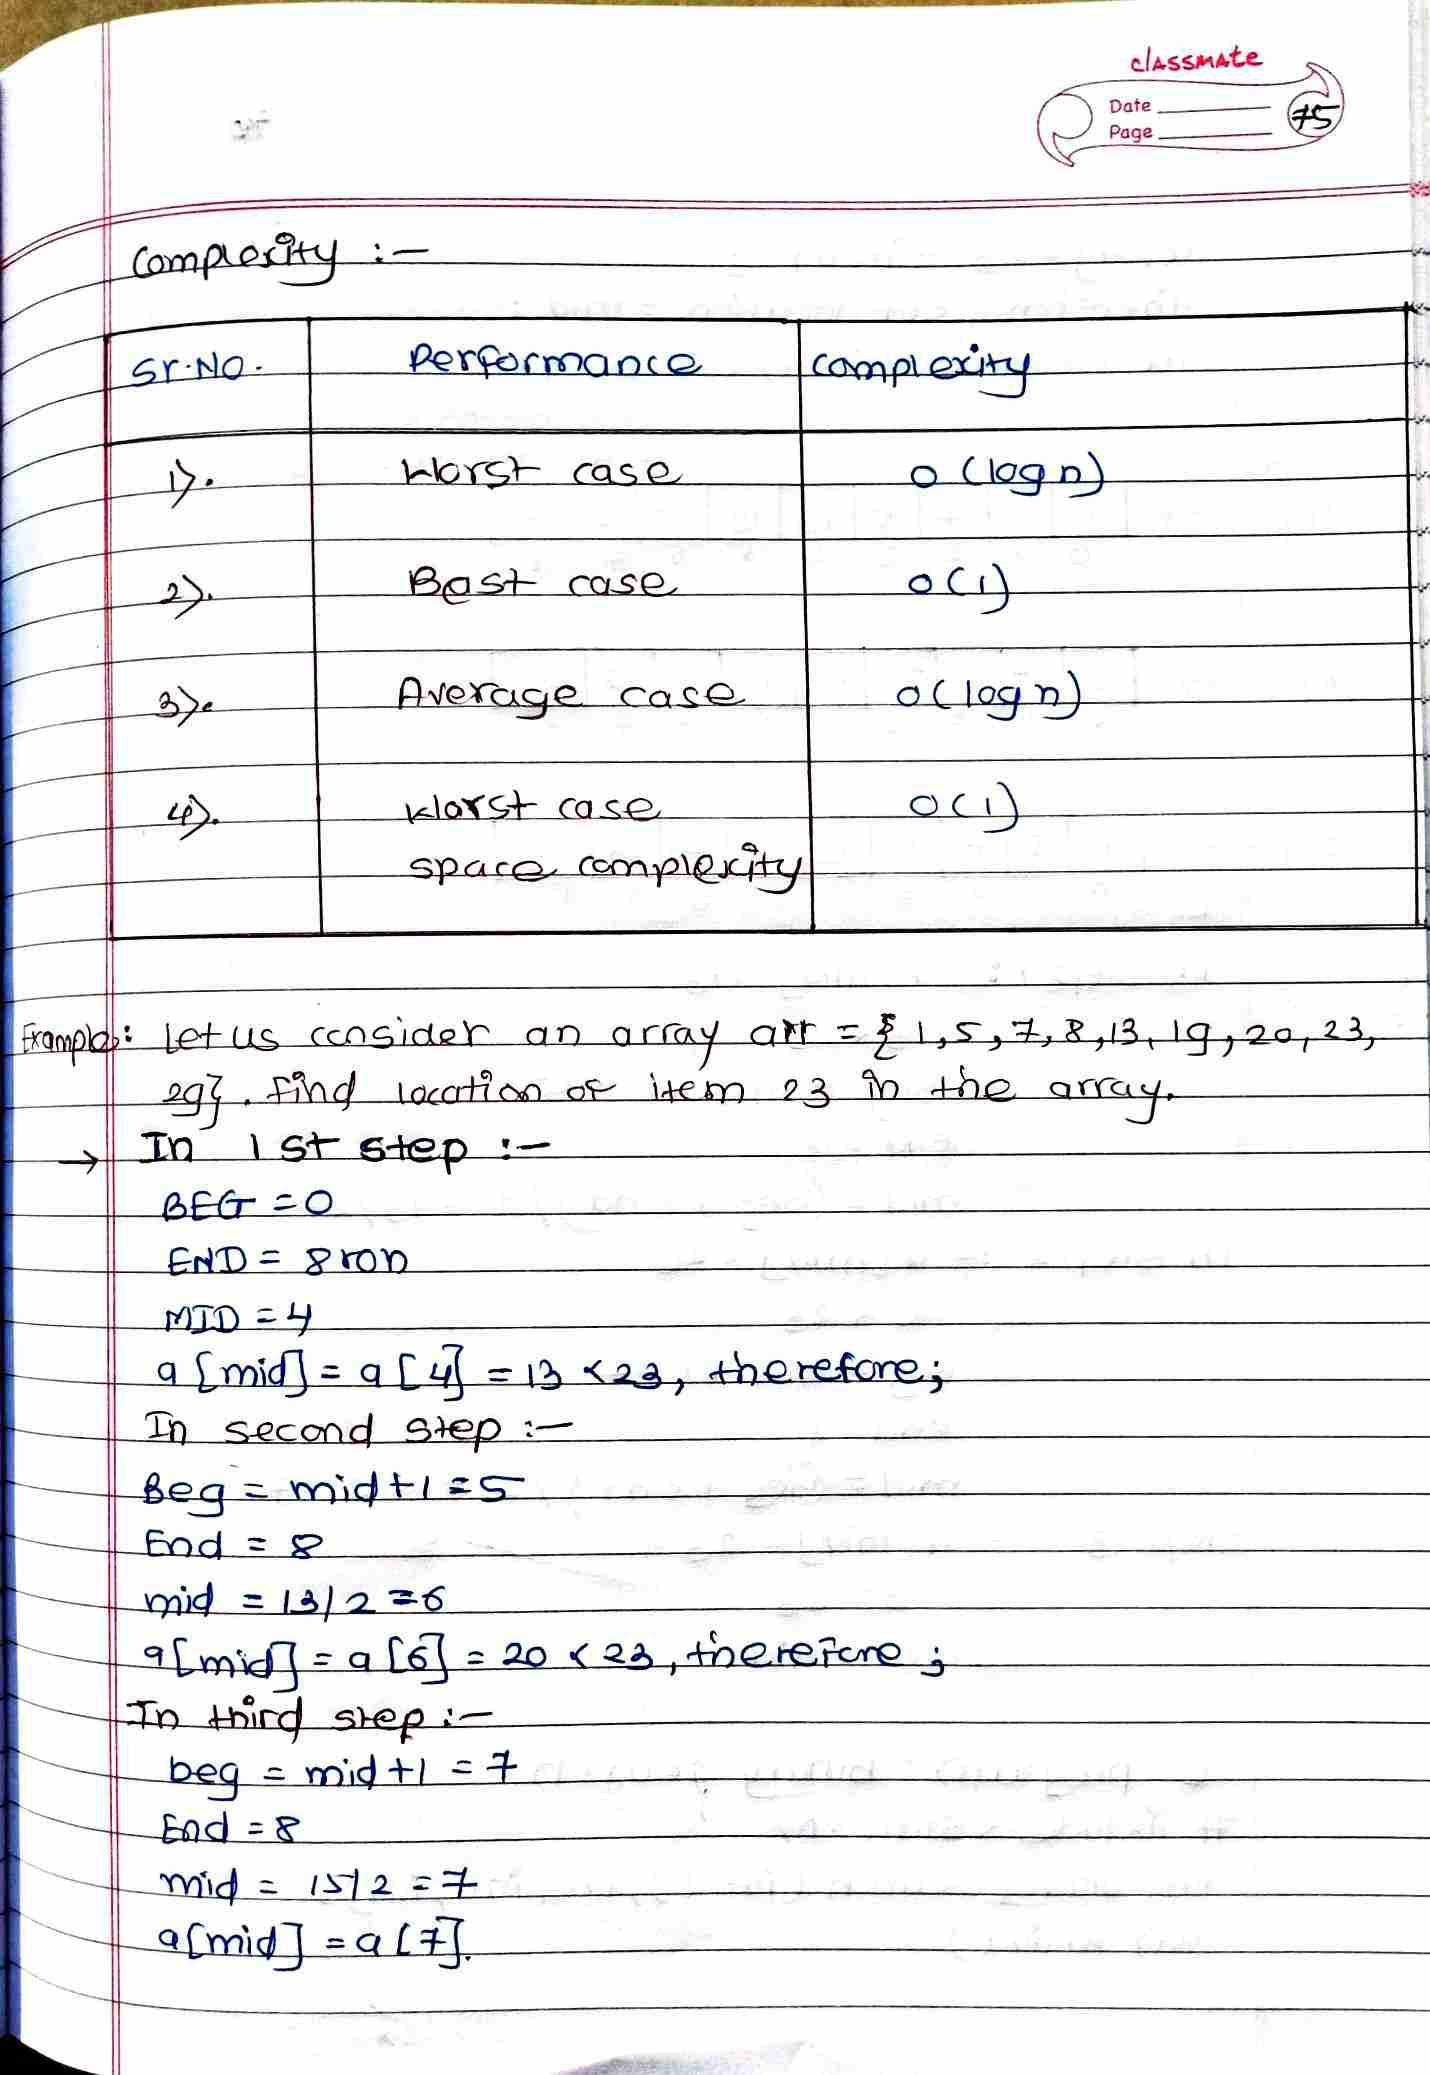 classmate
Date
Page
75
Complexity :-
Sr.No. Performance complexity
1). Worst case O(log n)
2). Best case O(1)
3). Average case O(log n)
4). Worst case O(1)
space complexity
Example: Let us consider an array arr = { 1, 5, 7, 8, 13, 19, 20, 23,
29}. Find location of item 23 in the array.
→ In 1st step :-
BEG = 0
END = 8 ron
MID = 4
a[mid] = a[4] = 13 < 23, therefore;
In second step :-
Beg = mid+1 = 5
End = 8
mid = 13/2 = 6
a[mid] = a[6] = 20 < 23, therefore ;
In third step :-
beg = mid+1 = 7
End = 8
mid = 15/2 = 7
a[mid] = a[7].